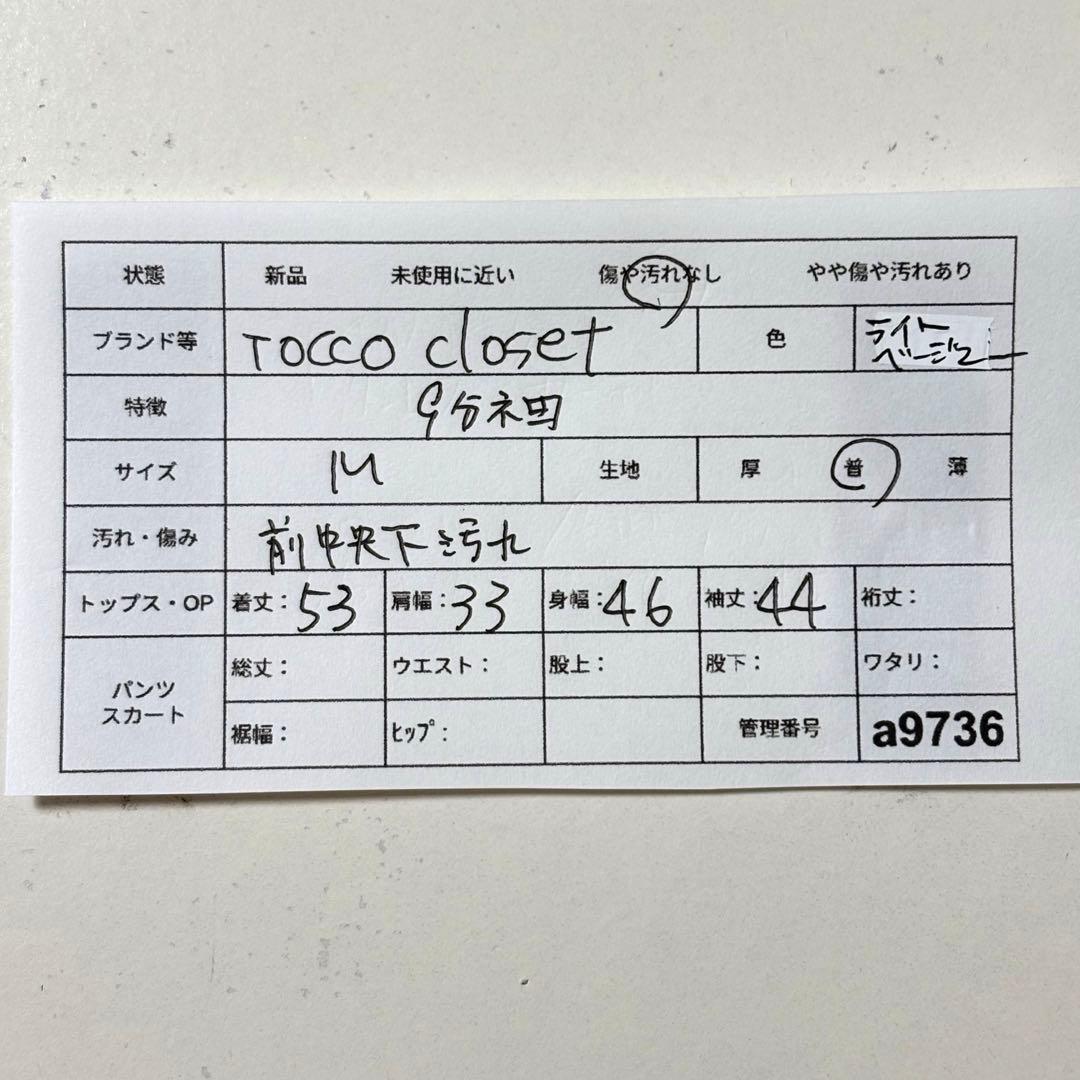 状態 新品 未使用に近い 傷や汚れなし やや傷や汚れあり
ブランド等 TOCCO closet 色 ライト
ベージュー
特徴 9分袖
サイズ M 生地 厚 普 薄
汚れ・傷み 前中央下汚れ
トップス・OP 着丈：53 肩幅：33 身幅：46 袖丈：44 裄丈：
パンツ
スカート
総丈： ウエスト： 股上： 股下： ワタリ：
裾幅： ﾋｯﾌﾟ： 管理番号 a9736